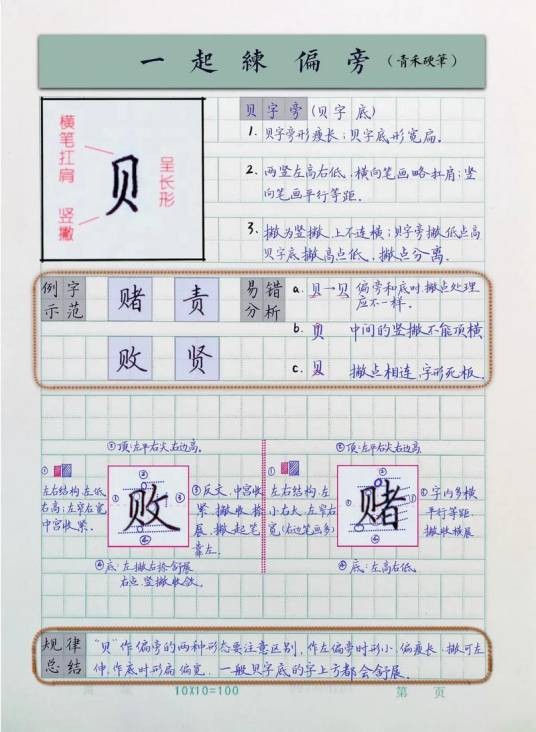 一起練偏旁(青禾硬筆)
横笔扛肩
贝
呈长形
竖撇
贝字旁(贝字底)
1. 贝字旁形瘦长;贝字底形宽扁。
2. 两竖左高右低,横向笔画略扛肩;竖
向笔画平行等距。
3. 撇为竖撇,上不连横;贝字旁撇低点高
贝字底撇高点低,撇点分离。
例字
示范
赌 责
败 贤
易错
分析
a. 贝→贝 偏旁和底时,撇点处理
应不一样。
b. 贝 中间的竖撇不能顶横
c. 贝 撇点相连,字形死板。
②顶:左平右尖右边高。
①
左右结构:左低
右高;左窄右宽
中宫收紧。
败
③反文,中宫收
紧,撇收捺
展,撇起笔
靠左。
④底:左撇右捺舒展
右点,竖撇收敛。
②顶:左平右尖右边高。
①
左右结构:左
小右大,左窄右
宽(右边笔画多)
赌
③字内多横
平行等距,
撇收横展
④底:左高右低
规律
总结
“贝”作偏旁的两种形态要注意区别,作左偏旁时形小,偏瘦长,撇可左
伸,作底时形扁偏宽,一般贝字底的字上方都会舒展。
10X10=100
第 页